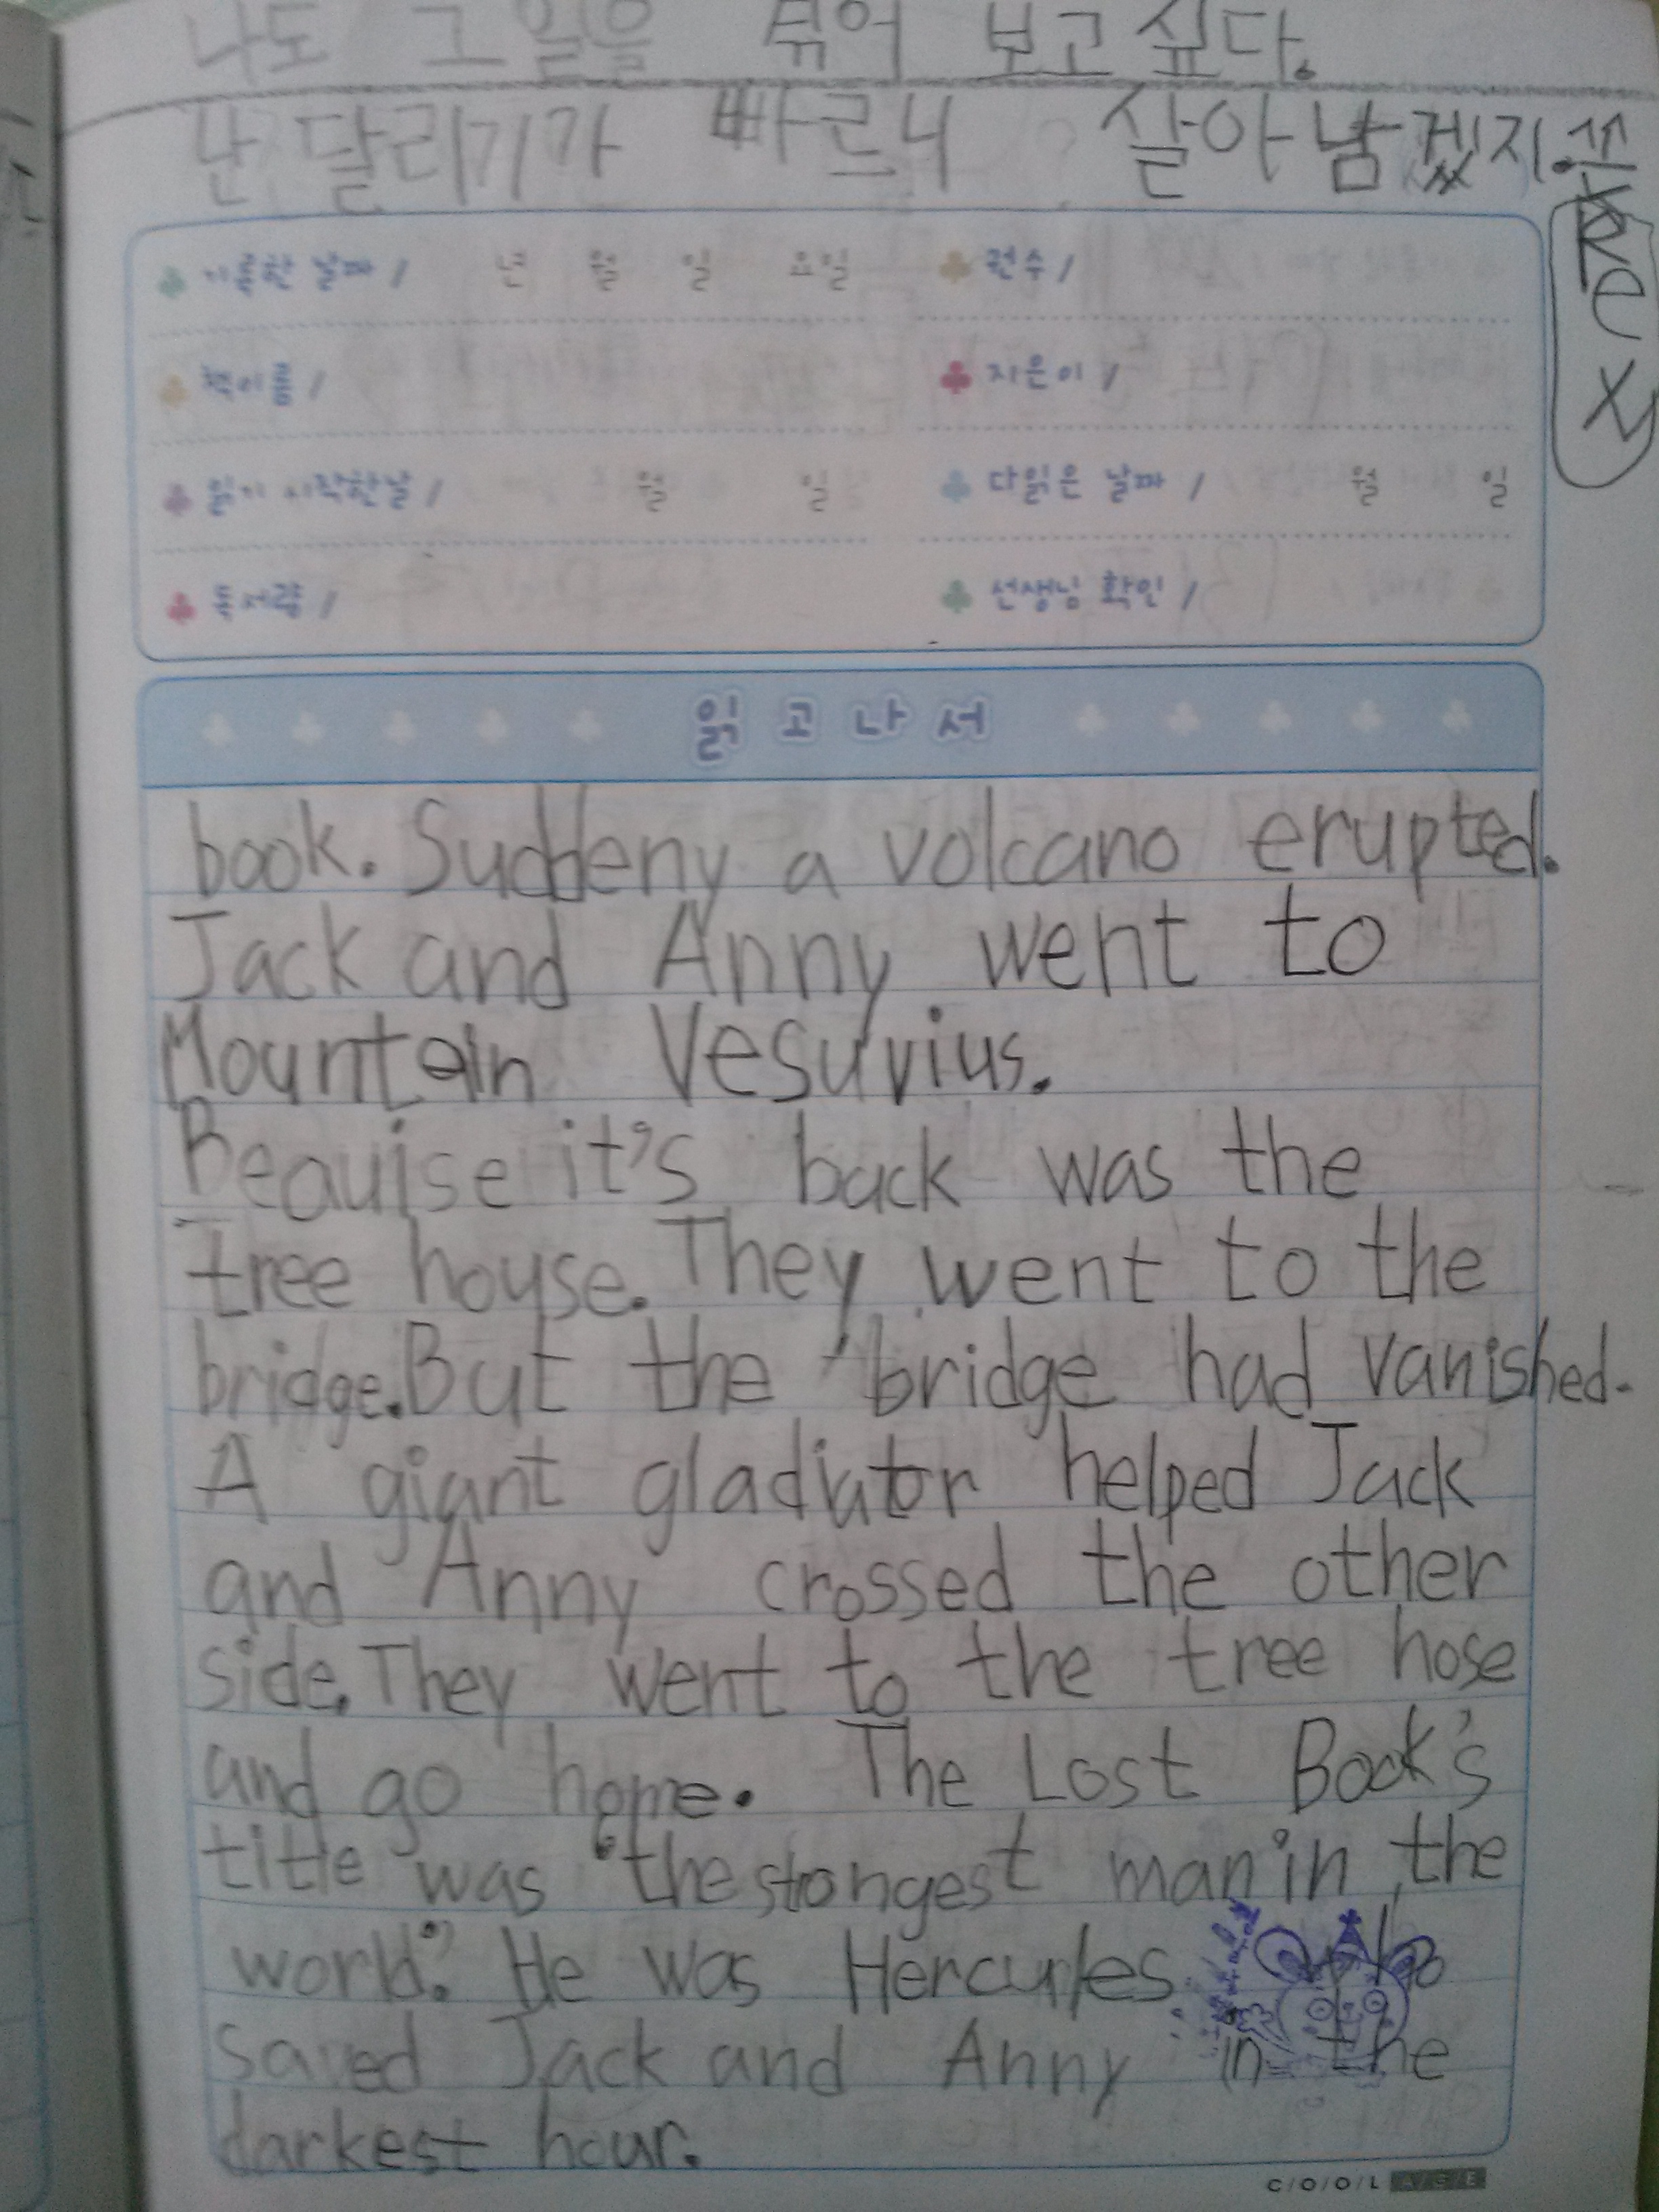 나도 그 일을 겪어 보고 싶다.
난 달리기가 빠르니 살아남겠지.
기록한 날짜 / 년 월 일 요일
권수 /
책이름 /
지은이 /
읽기 시작한날 / 월 일
다읽은 날짜 / 월 일
독서량 /
선생님 확인 /
읽고나서
book. Suddeny a volcano erupted.
Jack and Anny went to
Mountain Vesuvius.
Beauise it's back was the
tree house. They went to the
bridge. But the bridge had vanished.
A giant gladiator helped Jack
and Anny crossed the other
side. They went to the tree hose
and go home. The Lost Book's
title was "the strongest man in the
world." He was Hercurles who
saved Jack and Anny in the
darkest hour.
C/O/O/L A/G/E